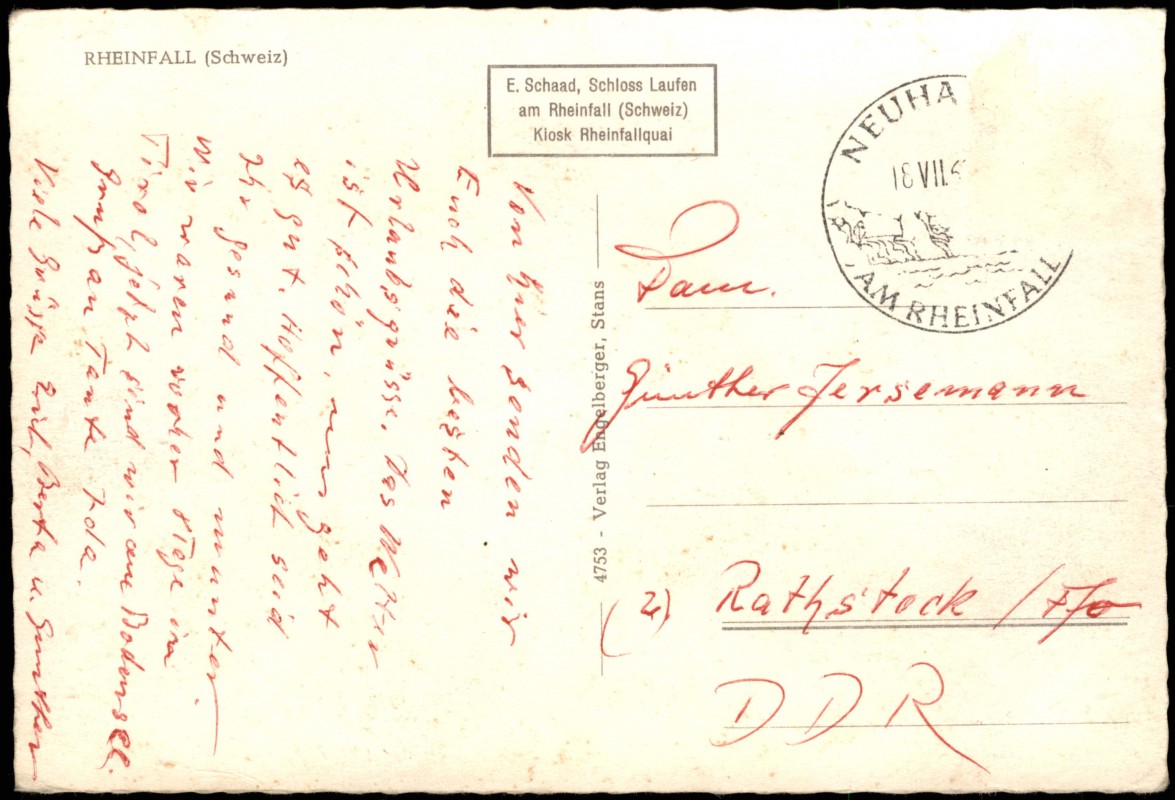 RHEINFALL (Schweiz)
E. Schaad, Schloss Laufen
am Rheinfall (Schweiz)
Kiosk Rheinfallquai
NEUHA
18 VII
AM RHEINFALL
Von hier senden wir
Euch die besten
Urlaubsgrüsse. Das Wetter
ist schön, uns geht
es gut. Hoffentlich seid
Ihr gesund und munter.
Wir waren vorher Tage in
Tirol, jetzt sind wir am Bodensee.
Gruß an Tante Ida.
Viele Grüsse Berta u. Günther
4753 - Verlag Engelberger, Stans
Fam.
Günther Jersemann
Rathstock / F/o
DDR